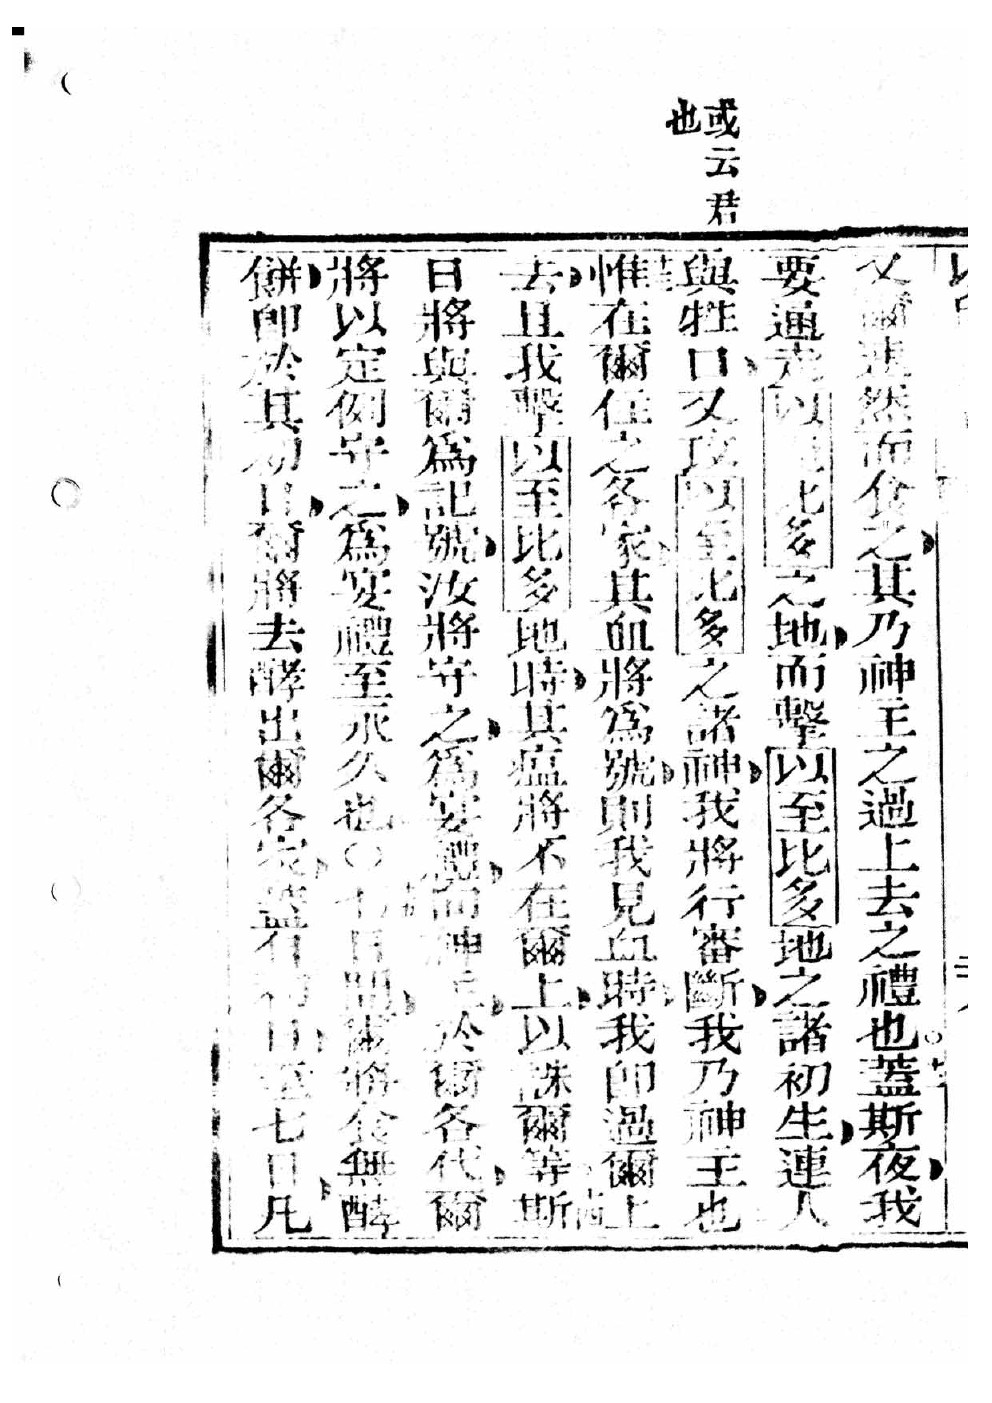 或云君
也
又爾速然而食之其乃神主之過上去之禮也○蓋斯夜我
要通走以至比多之地而擊以至比多地之諸初生連人
與牲口又攻以至比多之諸神我將行審斷我乃神主也
惟在爾住之各家其血將為號則我見血時我即過爾上
去且我擊以至比多地時其瘟將不在爾上以誅爾等斯
日將與爾為記號汝將守之為宴禮而神主於爾各代爾
將以定例守之為宴禮至永久也○七日間爾將食無酵
餅即於其初日爾將去酵出爾各家蓋有初日至七日凡